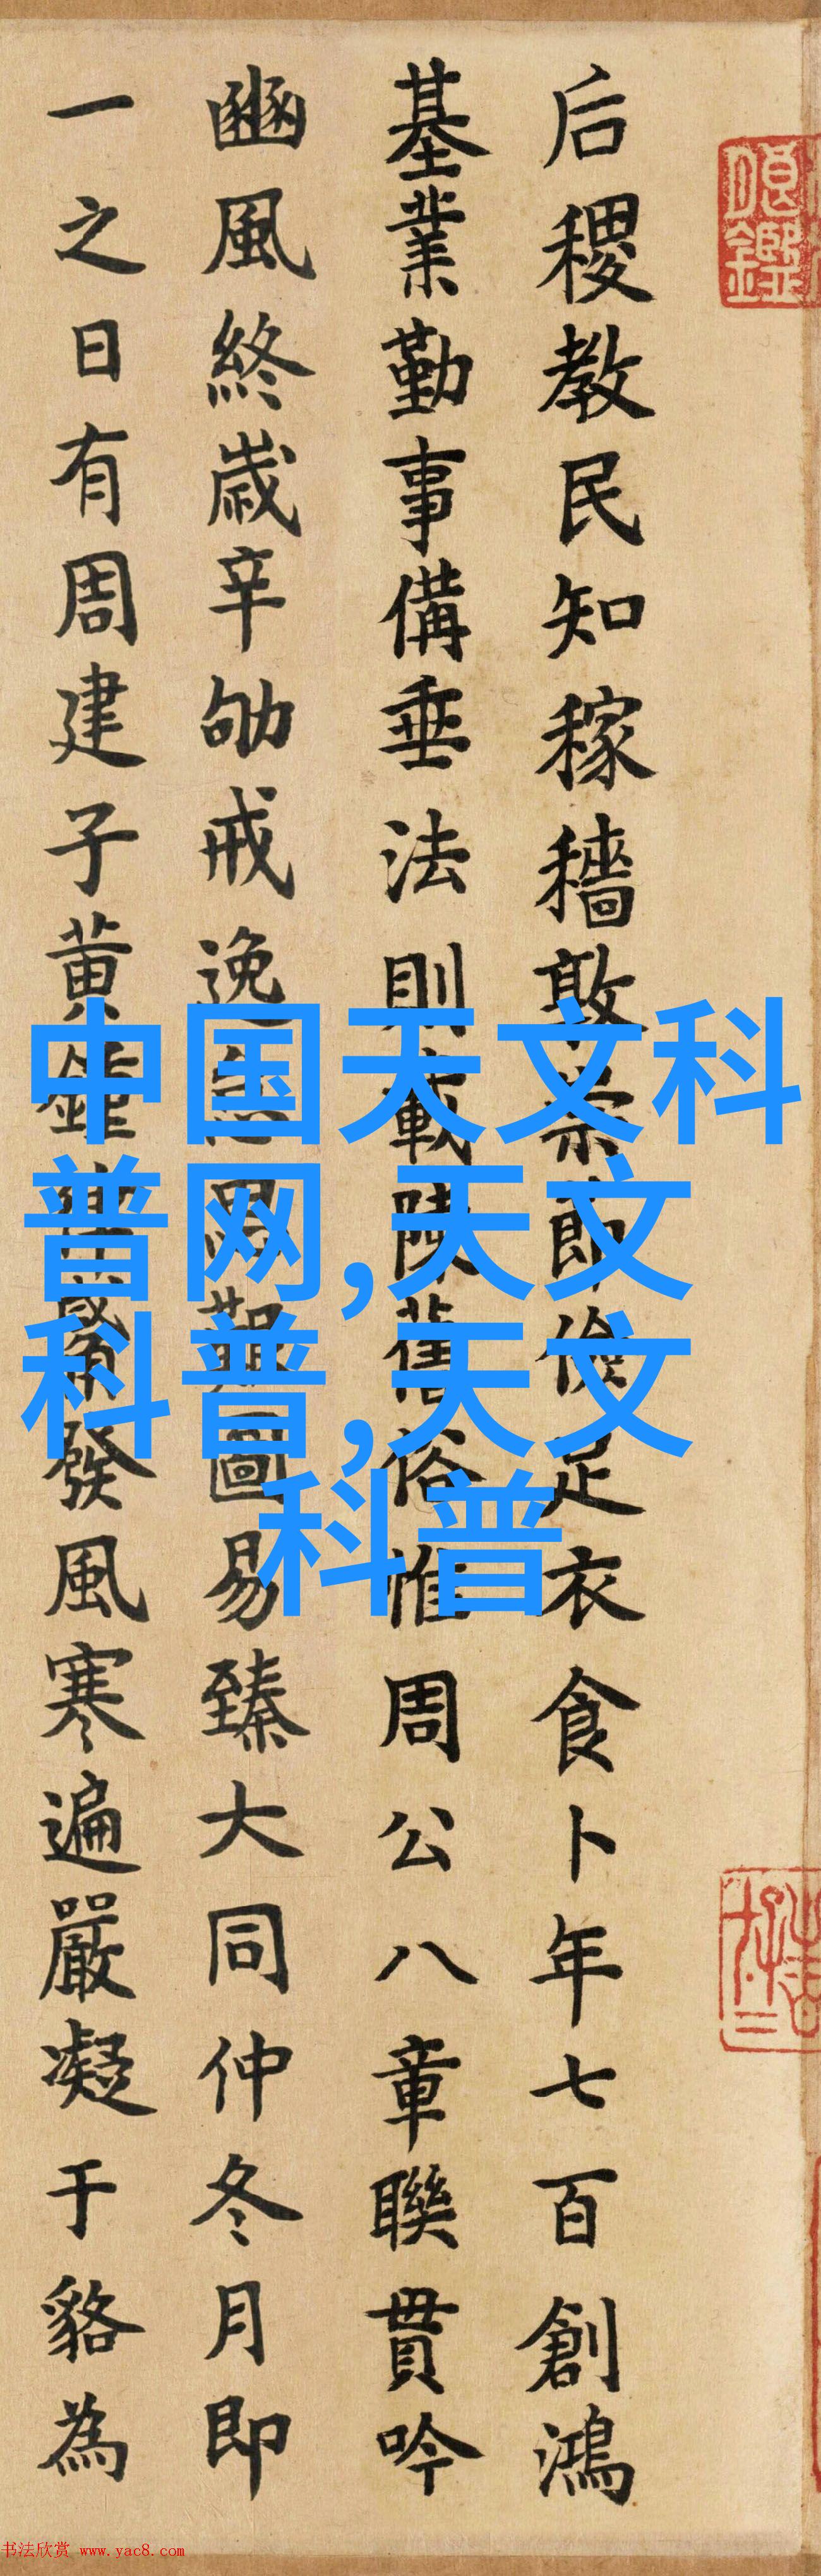 后稷教民知稼穡敦崇節儉足衣食卜年七百創鴻
基業勤事備垂法則載陳舊俗惟周公八章聯貫吟
豳風終歲辛劬戒逸思艱圖易臻大同仲冬月即
一之日有周建子黃鐘發風寒遍嚴凝于貉為
中国天文科
普网,天文
科普,天文
科普
书法欣赏 www.yac8.com